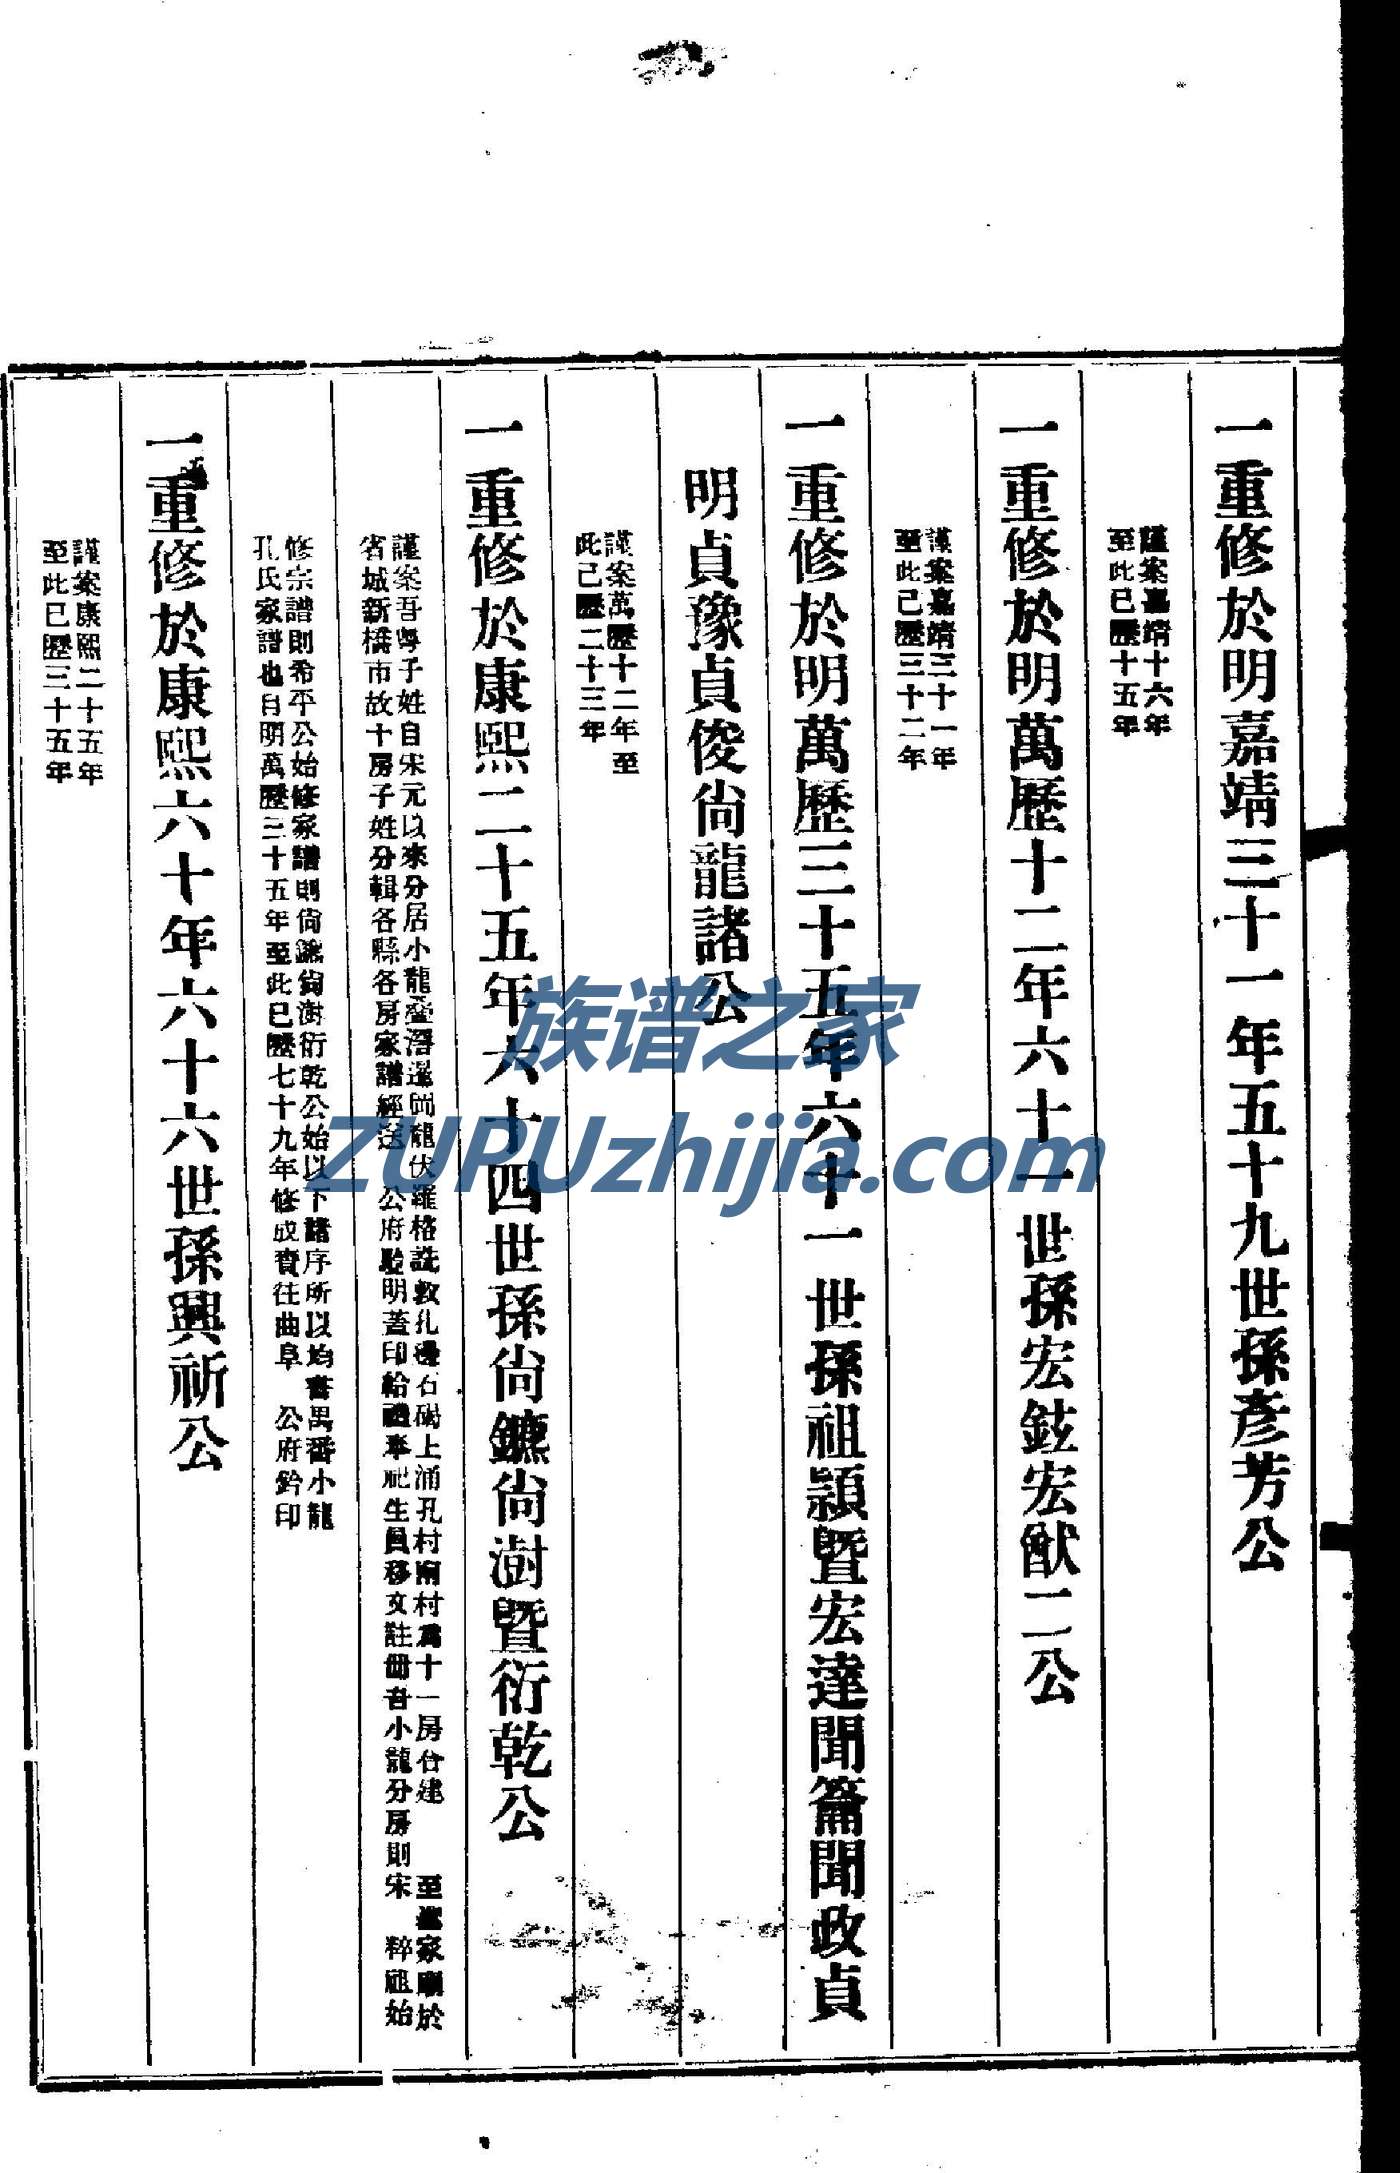 一重修於明嘉靖三十一年五十九世孫彥芳公
謹案嘉靖十六年
至此已歷十五年
一重修於明萬歷十二年六十一世孫宏鉉宏猷二公
謹案嘉靖三十一年
至此已歷三十二年
一重修於明萬歷三十五年六十一世孫祖穎暨宏達聞籥聞政貞
明貞豫貞俊尙龍諸公
謹案萬歷十二年至
此已歷二十三年
一重修於康熙二十五年六十四世孫尙鑣尙澍暨衍乾公
謹案吾粵子姓自宋元以來分居小龍疊滘暹岡龍伏羅格詵敦孔邊石碣上涌孔村南村爲十一房合建 至聖家廟於
省城新橋市故十房子姓分輯各縣各房家譜經送 公府驗明蓋印給禮奉祀生員移文註冊吾小龍分房則宋 粹祖始
修宗譜則希平公始修家譜則尙鑣尙澍衍乾公始以下諸序所以均書禺番小龍
孔氏家譜也自明萬歷三十五年至此已歷七十九年修成賫往曲阜 公府鈐印
一重修於康熙六十年六十六世孫興祈公
謹案康熙二十五年
至此已歷三十五年
族谱之家
ZUPUzhijia.com